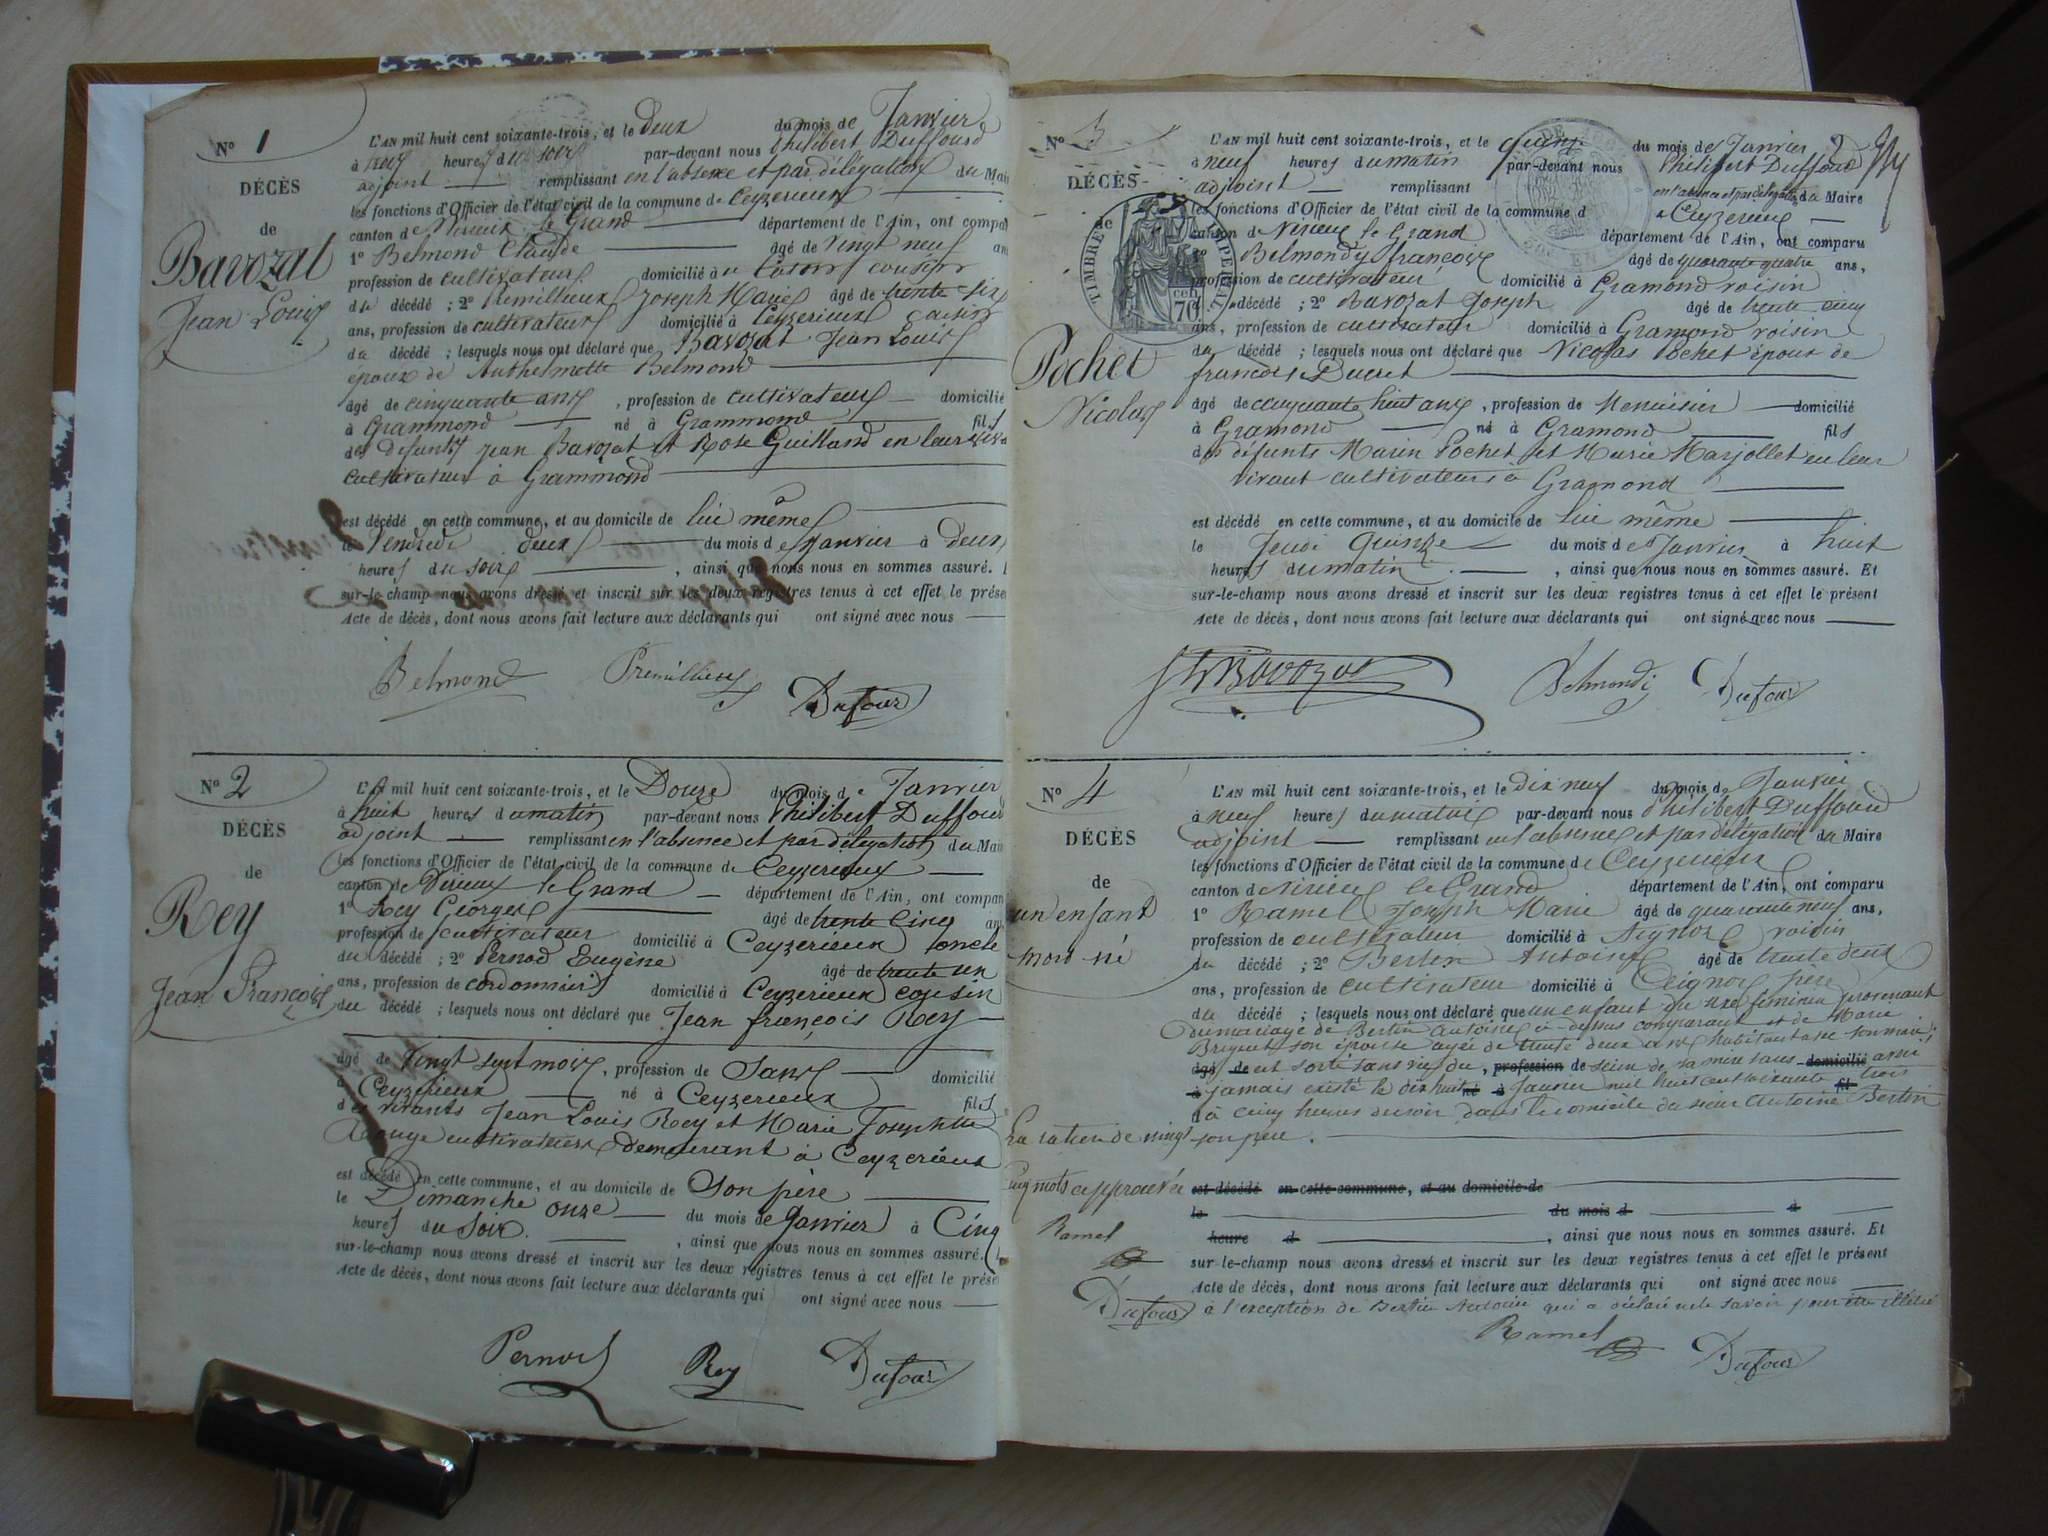 N° 1
DÉCÈS
de
Bavozat
Jean Louis
L'AN mil huit cent soixante-trois, et le deux du mois de Janvier
à heures du soir par-devant nous Philibert Duffourd
adjoint remplissant en l'absence et par délégation du Mai
les fonctions d'Officier de l'état civil de la commune de Ceyzerieux
canton de Virieux le Grand département de l'Ain, ont compa
1° Belmond Claude âgé de vingt neuf an
profession de cultivateur domicilié à cousin
du décédé ; 2° Premillieux Joseph Marie âgé de trente six
ans, profession de cultivateur domicilié à Ceyzerieux cousin
du décédé ; lesquels nous ont déclaré que Bavozat Jean Louis
époux de Anthelmette Belmond
âgé de cinquante ans, profession de cultivateur domicilié
à Grammond né à Grammond fils
des défunts Jean Bavozat et Rose Guilland en leur viva
cultivateurs à Grammond
est décédé en cette commune, et au domicile de lui même
le Vendredi deux du mois de Janvier à deux
heures du soir, ainsi que nous nous en sommes assuré.
sur-le-champ nous avons dressé et inscrit sur les deux registres tenus à cet effet le prése
Acte de décès, dont nous avons fait lecture aux déclarants qui ont signé avec nous
Belmond Premillieux Dufour
N° 2
DÉCÈS
de
Rey
Jean François
L'AN mil huit cent soixante-trois, et le Douze du mois de Janvier
à huit heures du matin par-devant nous Philibert Duffourd
adjoint remplissant en l'absence et par délégation du Mai
les fonctions d'Officier de l'état civil de la commune de Ceyzerieux
canton de Virieux le Grand département de l'Ain, ont compar
1° Rey Georges âgé de trente cinq an
profession de cultivateur domicilié à Ceyzerieux oncle
du décédé ; 2° Pernod Eugène âgé de trente un
ans, profession de cordonnier domicilié à Ceyzerieux cousin
du décédé ; lesquels nous ont déclaré que Jean françois Rey
âgé de vingt sept mois, profession de Sans domicilié
à Ceyzerieux né à Ceyzerieux fils
des vivants Jean Louis Rey et Marie Josephtte
Rouge cultivateurs demeurant à Ceyzerieux
est décédé en cette commune, et au domicile de Son père
le Dimanche onze du mois de Janvier à Cinq
heures du Soir, ainsi que nous nous en sommes assuré.
sur-le-champ nous avons dressé et inscrit sur les deux registres tenus à cet effet le prése
Acte de décès, dont nous avons fait lecture aux déclarants qui ont signé avec nous
Pernod Rey Dufour
N° 3
DÉCÈS
de
TIMBRE IMPERIAL
70
Pochet
Nicolas
L'AN mil huit cent soixante-trois, et le quinze du mois de Janvier
à neuf heures du matin par-devant nous Philibert Duffourd
adjoint remplissant en l'absence et par délégation du Maire
les fonctions d'Officier de l'état civil de la commune d e Ceyzerieux
canton de Virieux le Grand département de l'Ain, ont comparu
1° Belmondy françois âgé de quarante quatre ans,
profession de cultivateur domicilié à Gramond voisin
du décédé ; 2° Bavozat Joseph âgé de trente cinq
ans, profession de cultivateur domicilié à Gramond voisin
du décédé ; lesquels nous ont déclaré que Nicolas Pochet époux de
françoise Ducret
âgé de cinquante huit ans, profession de Menuisier domicilié
à Gramond né à Gramond fils
des défunts Marin Pochet et Marie Marjollet en leur
vivant cultivateurs à Gramond
est décédé en cette commune, et au domicile de lui même
le Jeudi quinze du mois de Janvier à huit
heures du matin, ainsi que nous nous en sommes assuré. Et
sur-le-champ nous avons dressé et inscrit sur les deux registres tenus à cet effet le présent
Acte de décès, dont nous avons fait lecture aux déclarants qui ont signé avec nous
Bavozat Belmondy Dufour
N° 4
DÉCÈS
de
un enfant
mort né
L'AN mil huit cent soixante-trois, et le dix neuf du mois de Janvier
à neuf heures du matin par-devant nous Philibert Duffourd
adjoint remplissant en l'absence et par délégation du Maire
les fonctions d'Officier de l'état civil de la commune de Ceyzerieux
canton de Virieux le Grand département de l'Ain, ont comparu
1° Ramel Joseph Marie âgé de quarante neuf ans,
profession de cultivateur domicilié à Aignoz voisin
du décédé ; 2° Bertin Antoine âgé de trente deux
ans, profession de cultivateur domicilié à Aignoz père
du décédé ; lesquels nous ont déclaré que un enfant du sexe féminin provenant
du mariage de Bertin Antoine ci-dessus comparant et de Marie
Briquet son épouse agée de trente deux ans habitant avec son mari,
âgé de est sorti sans vie du, profession de sein de sa mère sans domicilié avoir
à jamais existé le dix huit né à Janvier mil huit cent soixante fil trois
d à cinq heures du soir dans le domicile du sieur Antoine Bertin
son père.
La rature de vingt
cinq mots approuvée
Ramel
Dufour
est décédé en cette commune, et au domicile de
le du mois d à
heure d, ainsi que nous nous en sommes assuré. Et
sur-le-champ nous avons dressé et inscrit sur les deux registres tenus à cet effet le présent
Acte de décès, dont nous avons fait lecture aux déclarants qui ont signé avec nous
à l'exception de Bertin Antoine qui a déclaré ne le savoir pour être illétré
Ramel Dufour